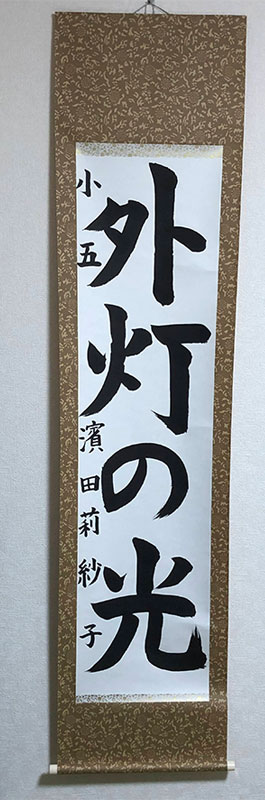 外灯の光
小五 濱田莉紗子